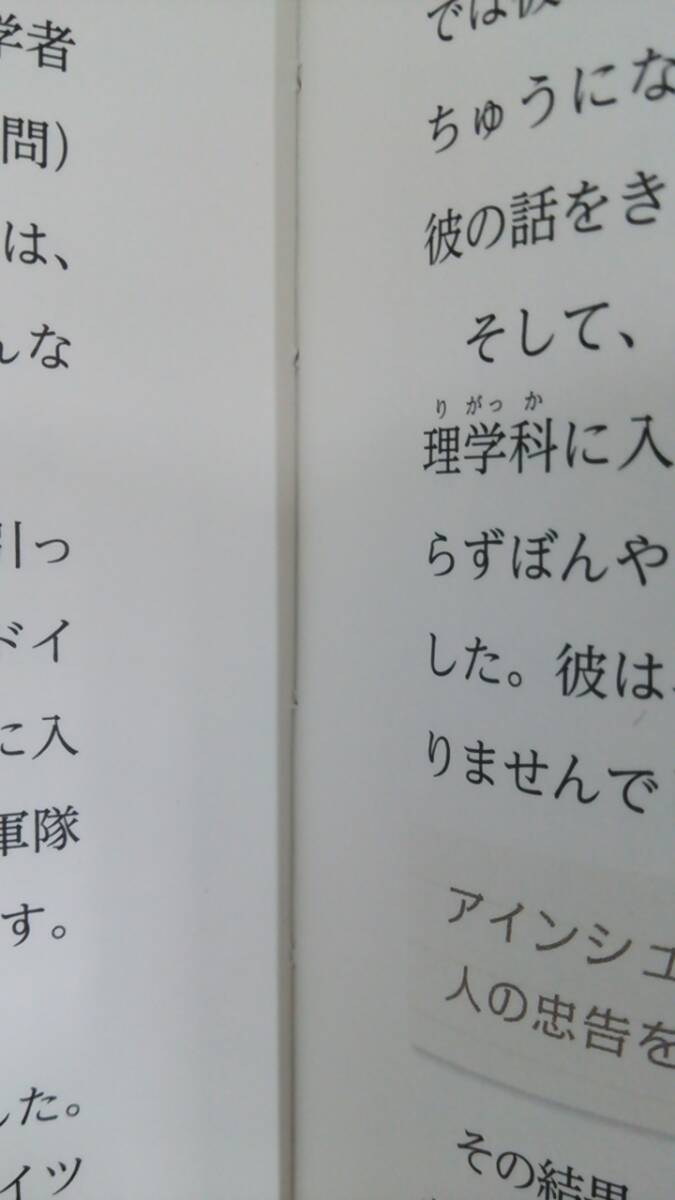 学者
問)
は、
んな
引っ
ドイ
に入
軍隊
す。
した。
イツ
では彼
ちゅうにな
彼の話をき
そして、
りがっか
理学科に入
らずぼんや
した。彼は
りませんで
アインシュ
人の忠告を
その結果